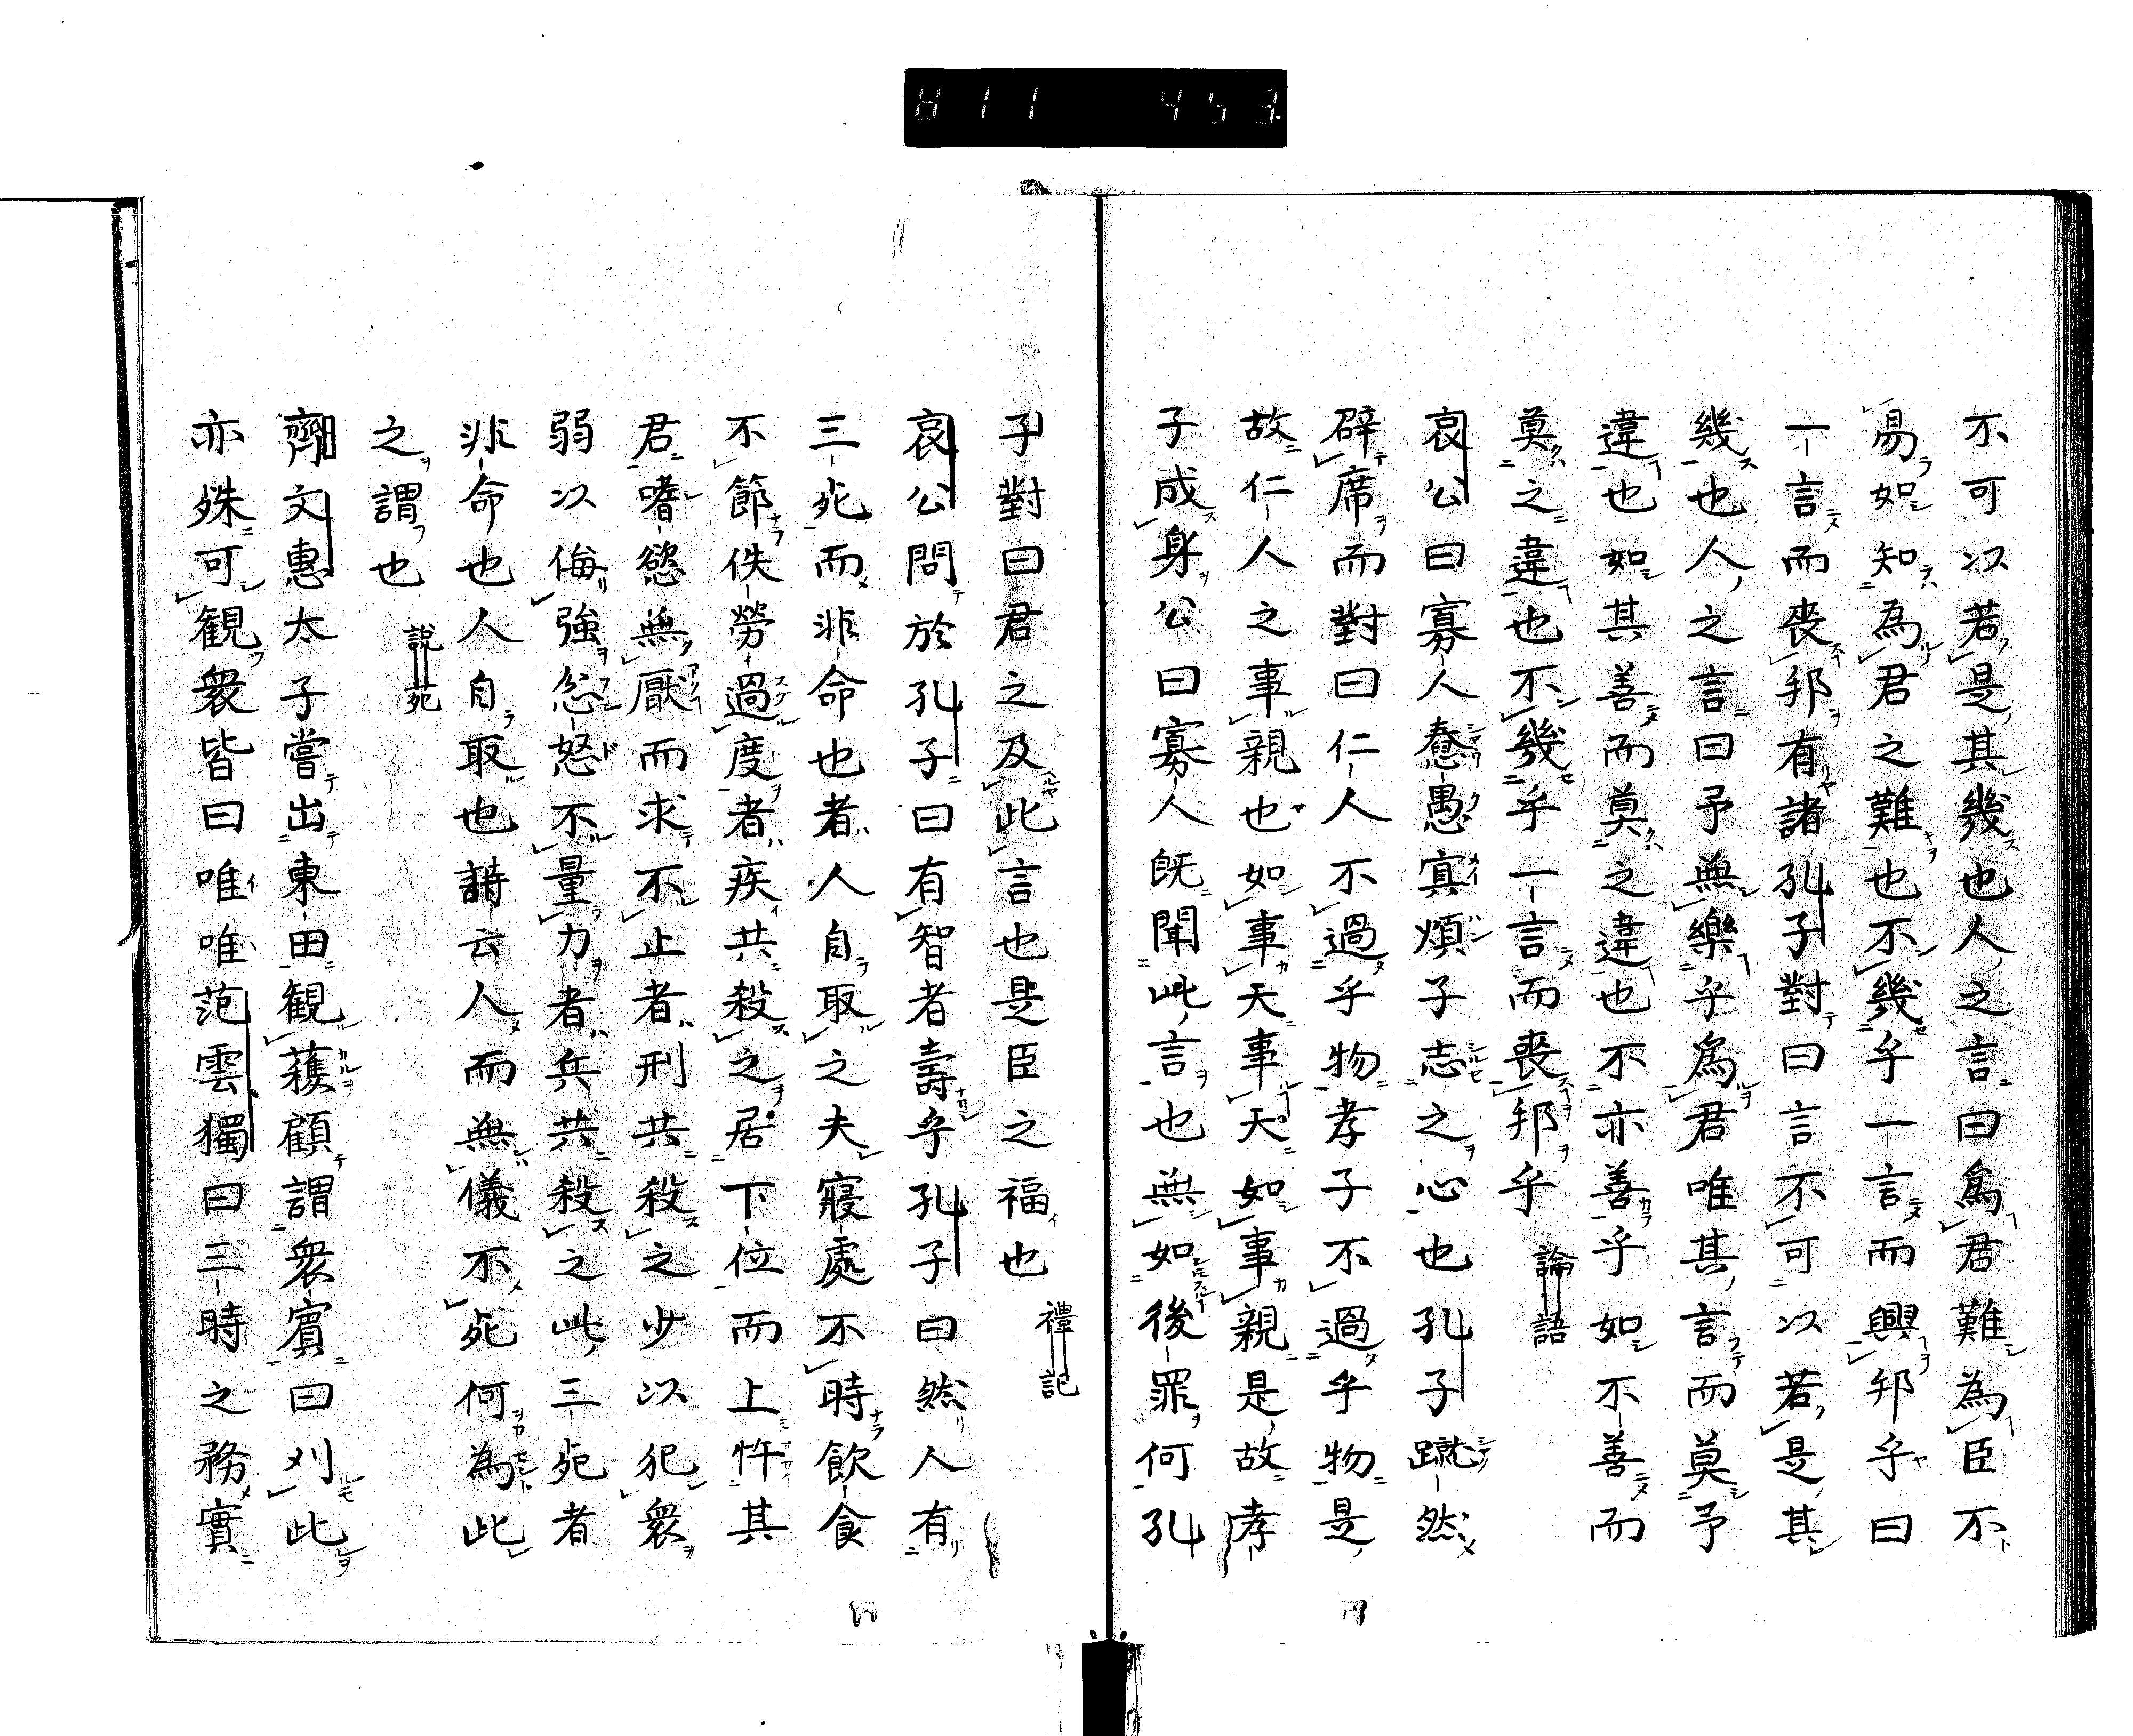 811 453
不可以若是其幾也人之言曰為君難為臣不
易如知為君之難也不幾乎一言而興邦乎曰
一言而喪邦有諸孔子對曰言不可以若是其
幾也人之言曰予無樂乎為君唯其言而莫予
違也如其善而莫之違也不亦善乎如不善而
莫之違也不幾乎一言而喪邦乎 論語
哀公曰寡人憃愚寘煩子志之心也孔子蹴然
辟席而對曰仁人不過乎物孝子不過乎物是
故仁人之事親也如事天事天如事親是故孝
子成身公曰寡人既聞此言也無如後罪何孔
子對曰君之及此言也是臣之福也 禮記
哀公問於孔子曰有智者壽乎孔子曰然人有
三死而非命也者人自取之夫寢處不時飲食
不節佚勞過度者疾共殺之居下位而上忤其
君嗜慾無厭而求不止者刑共殺之少以犯衆
弱以侮強忿怒不量力者兵共殺之此三死者
非命也人自取也詩云人而無儀不死何為此
之謂也 說苑
齊文惠太子嘗出東田觀穫顧謂衆賓曰刈此
亦殊可觀衆皆曰唯唯范雲獨曰三時之務實